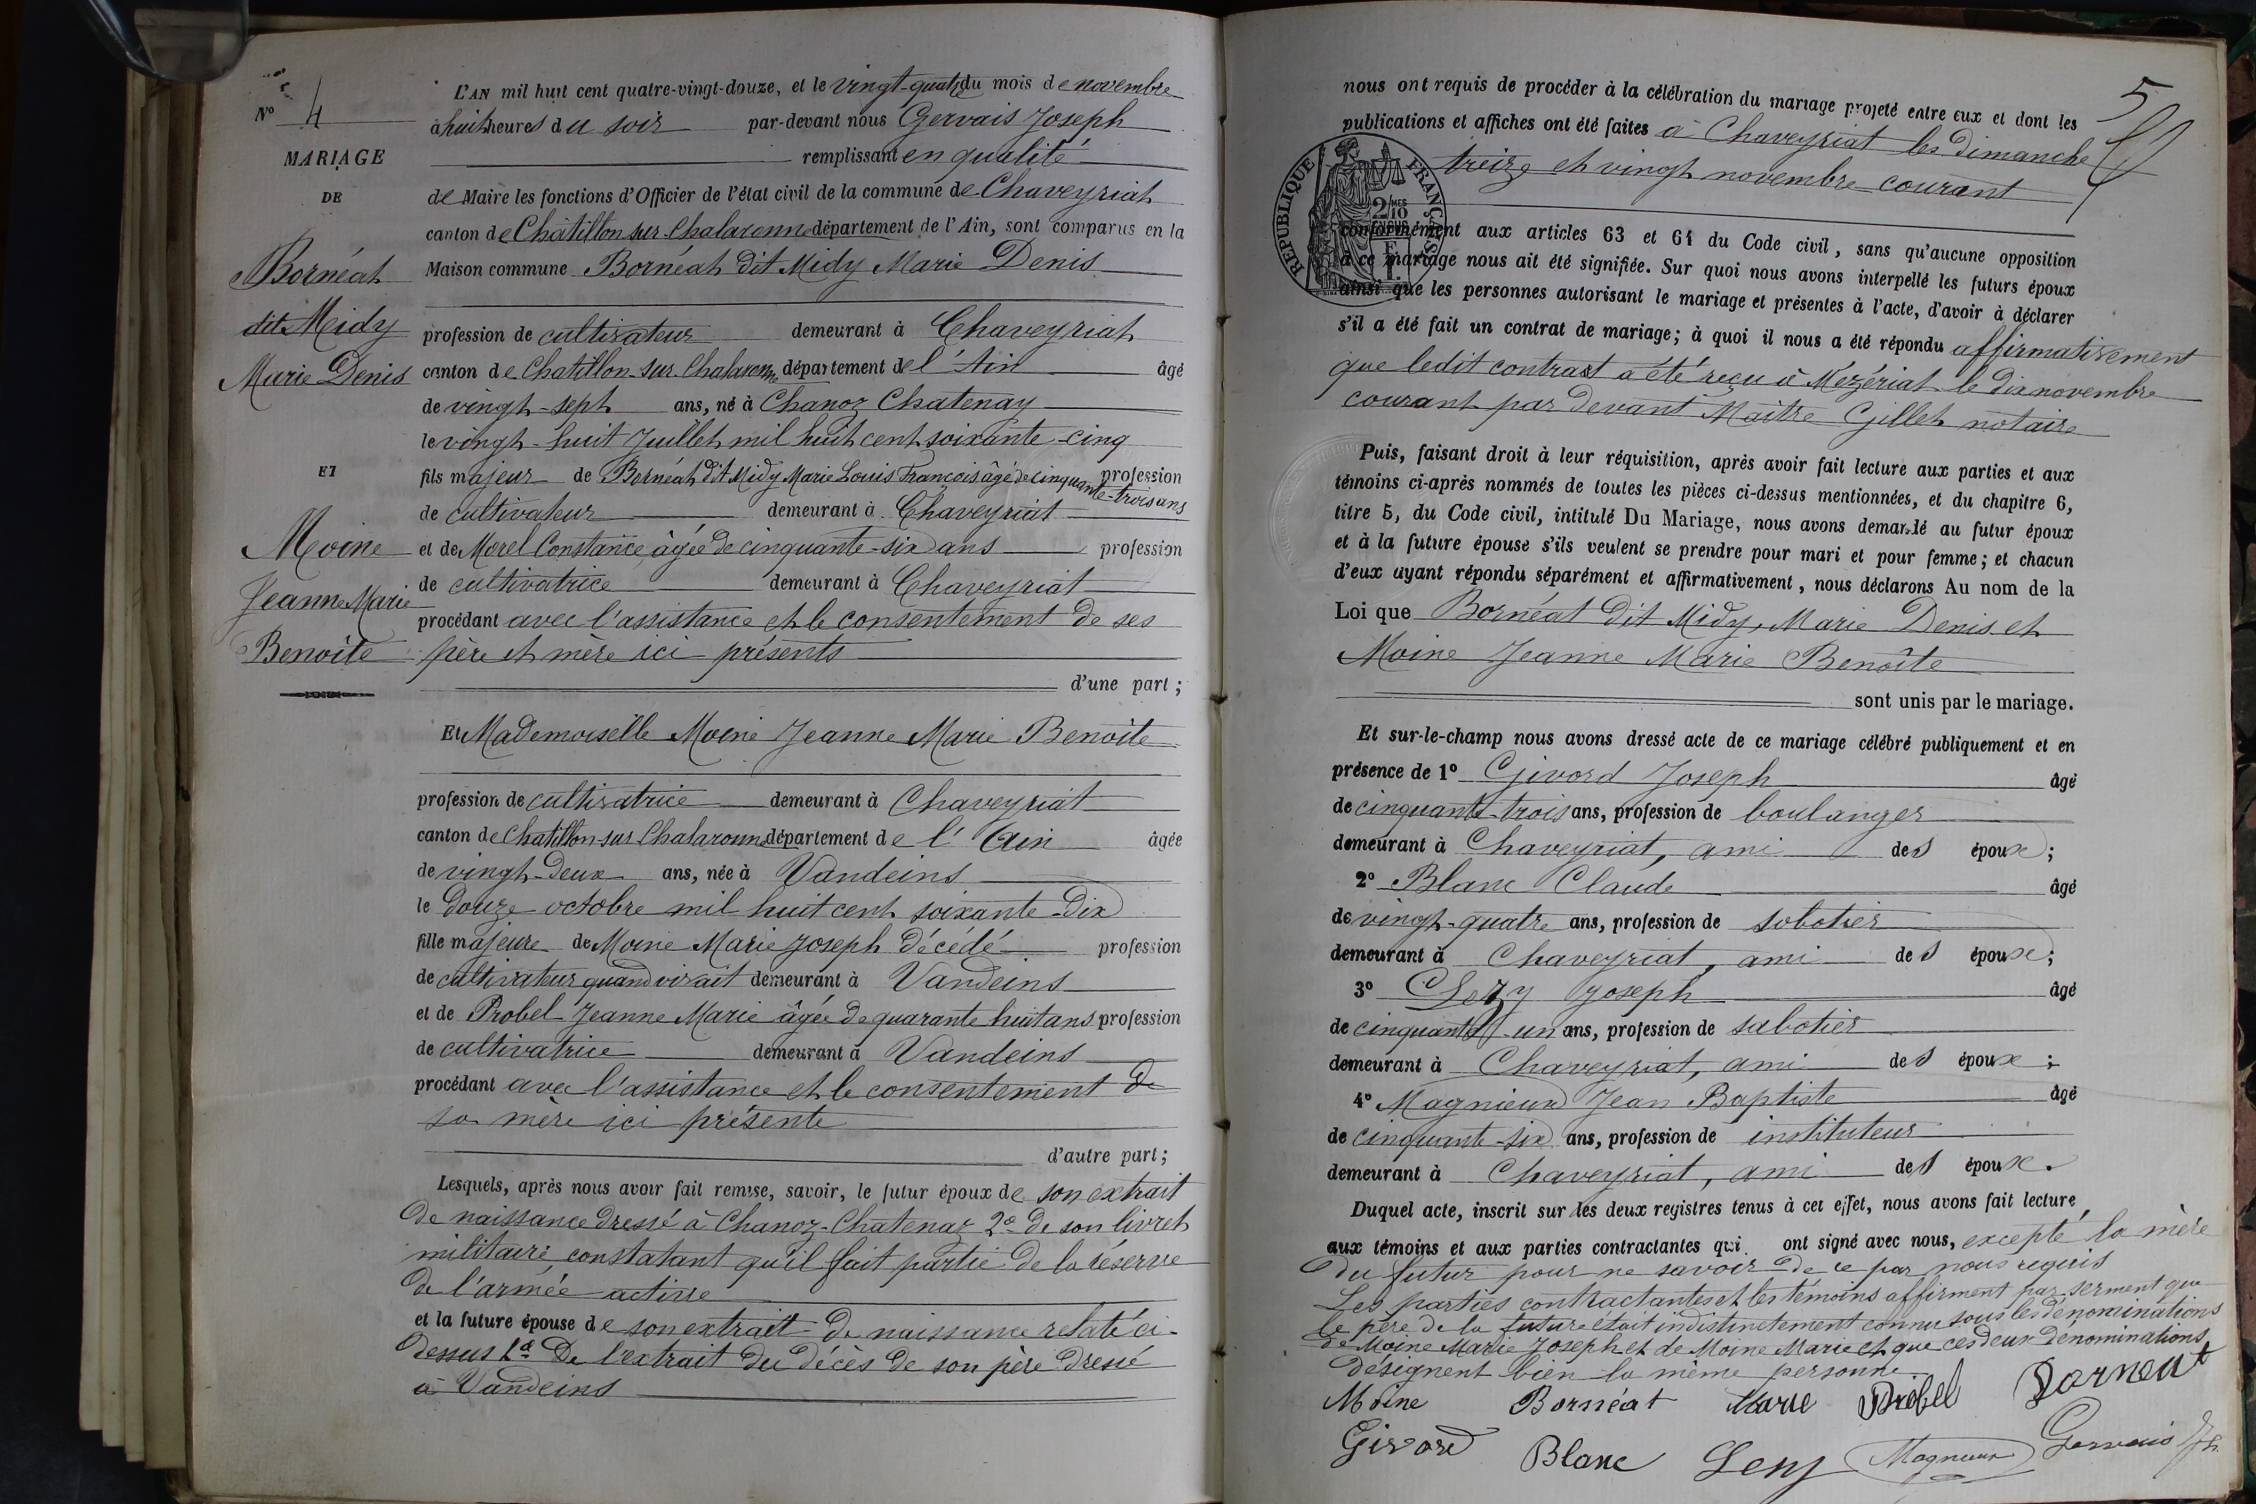 Nº 4
MARIAGE
DE
Bornéat
dit Midy
Marie Denis
ET
Moine
Jeanne Marie
Benoîte
L'AN mil huit cent quatre-vingt-douze, et le vingt-quatre du mois de novembre
à huit heures du soir par-devant nous Gervais Joseph
remplissant en qualité
de Maire les fonctions d'Officier de l'état civil de la commune de Chaveyriat
canton de Châtillon sur Chalaronne département de l'Ain, sont comparus en la
Maison commune Bornéat dit Midy Marie Denis
profession de cultivateur demeurant à Chaveyriat
canton de Chatillon-sur-Chalaronne département de l'Ain âgé
de vingt-sept ans, né à Chanoz Chatenay
le vingt-huit Juillet mil huit cent soixante-cinq
fils majeur de Bornéat dit Midy Marie Louis François âgé de cinquante-trois ans profession
de cultivateur demeurant à Chaveyriat
et de Morel Constance âgée de cinquante-six ans profession
de cultivatrice demeurant à Chaveyriat
procédant avec l'assistance et le consentement de ses
père et mère ici présents
d'une part ;
Et Mademoiselle Moine Jeanne Marie Benoîte
profession de cultivatrice demeurant à Chaveyriat
canton de Chatillon-sur Chalaronne département de l'Ain âgée
de vingt-deux ans, née à Vandeins
le douze octobre mil huit cent soixante-dix
fille majeure de Moine Marie Joseph décédé profession
de cultivateur quand vivait demeurant à Vandeins
et de Probel Jeanne Marie âgée de quarante huit ans profession
de cultivatrice demeurant à Vandeins
procédant avec l'assistance et le consentement de
sa mère ici présente
d'autre part ;
Lesquels, après nous avoir fait remise, savoir, le futur époux de son extrait
de naissance dressé à Chanoz-Chatenay 2º de son livret
militaire constatant qu'il fait partie de la réserve
de l'armée active
et la future épouse de son extrait de naissance relaté ci-
dessus 2º De l'extrait du décès de son père dressé
à Vandeins
5
nous ont requis de procéder à la célébration du mariage projeté entre eux et dont les
publications et affiches ont été faites à Chaveyriat les dimanche
treize et vingt novembre courant
RÉPUBLIQUE FRANÇAISE
2/10
conformément aux articles 63 et 64 du Code civil, sans qu'aucune opposition
à ce mariage nous ait été signifiée. Sur quoi nous avons interpellé les futurs époux
ainsi que les personnes autorisant le mariage et présentes à l'acte, d'avoir à déclarer
s'il a été fait un contrat de mariage; à quoi il nous a été répondu affirmativement
que ledit contrat a été reçu à Mézériat le dix novembre
courant par devant Maître Gillet notaire
Puis, faisant droit à leur réquisition, après avoir fait lecture aux parties et aux
témoins ci-après nommés de toutes les pièces ci-dessus mentionnées, et du chapitre 6,
titre 5, du Code civil, intitulé Du Mariage, nous avons demandé au futur époux
et à la future épouse s'ils veulent se prendre pour mari et pour femme; et chacun
d'eux ayant répondu séparément et affirmativement, nous déclarons Au nom de la
Loi que Bornéat dit Midy, Marie Denis et
Moine Jeanne Marie Benoîte
sont unis par le mariage.
Et sur-le-champ nous avons dressé acte de ce mariage célébré publiquement et en
présence de 1º Givord Joseph âgé
de cinquante-trois ans, profession de boulanger
demeurant à Chaveyriat, ami des époux ;
2º Blanc Claude âgé
de vingt-quatre ans, profession de sobotier
demeurant à Chaveyriat, ami des époux ;
3º Lezy Joseph âgé
de cinquante un ans, profession de sabotier
demeurant à Chaveyriat, ami des époux ;
4º Magnieux Jean Baptiste âgé
de cinquante-six ans, profession de instituteur
demeurant à Chaveyriat, ami des époux.
Duquel acte, inscrit sur les deux registres tenus à cet effet, nous avons fait lecture
aux témoins et aux parties contractantes qui ont signé avec nous, excepté la mère
du futur pour ne savoir de ce par nous requis
Les parties contractantes et les témoins affirment par serment que
le père de la future était indistinctement connu sous les dénominations
de Moine Marie Joseph et de Moine Marie et que ces deux dénominations
désignent bien la même personne
Moine Bornéat Marie Probel Borneat
Givord Blanc Lezy Magnieux Gervais Jh